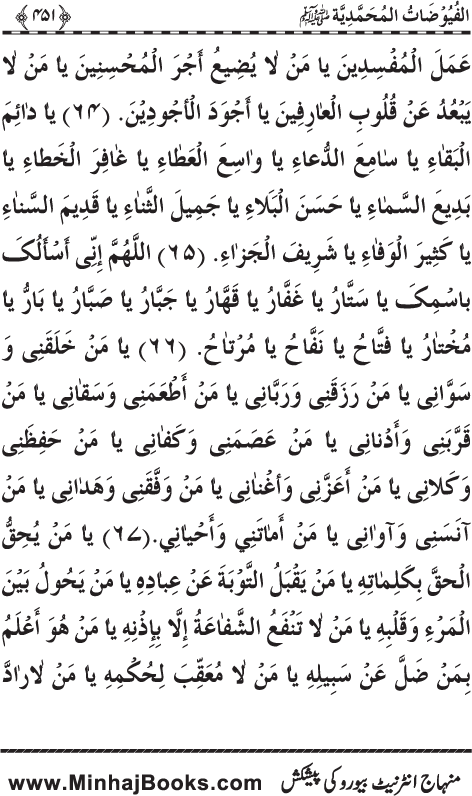 الفُيُوْضَاتُ المُحَمَّدِيَّة ﷺ ﴿۴۵۱﴾
عَمَلَ الْمُفْسِدِينَ يا مَنْ لَا يُضِيعُ أَجْرَ الْمُحْسِنِينَ يا مَنْ لَا
يَبْعُدُ عَنْ قُلُوبِ الْعَارِفِينَ يا أَجْوَدَ الْأَجْوَدِيْنَ. (۶۴) يا دَائِمَ
الْبَقَاءِ يا سَامِعَ الدُّعاءِ يا واسِعَ الْعَطَاءِ يا غَافِرَ الْخَطاءِ يا
بَدِيعَ السَّمَاءِ يا حَسَنَ الْبَلَاءِ يا جَمِيلَ الثَّنَاءِ يا قَدِيمَ السَّنَاءِ
يا كَثِيرَ الْوَفَاءِ يا شَرِيفَ الْجَزَاءِ. (۶۵) اللَّهُمَّ إِنِّى أَسْأَلُكَ
باسْمِكَ يا سَتَّارُ يا غَفَّارُ يا قَهَّارُ يا جَبَّارُ يا صَبَّارُ يا بَارُّ يا
مُخْتَارُ يا فتَّاحُ يا نَفَّاحُ يا مُرْتَاحُ. (۶۶) يا مَنْ خَلَقَنِى وَ
سَوَّانِى يا مَنْ رَزَقَنِى وَرَبَّانِى يا مَنْ أَطْعَمَنِى وَسَقَانِى يا مَنْ
قَرَّبَنِى وَأَدْنانِى يا مَنْ عَصَمَنِى وَكَفانِى يا مَنْ حَفِظَنِى
وَكَلانِى يا مَنْ أَعَزَّنِى وَأغْنانِى يا مَنْ وَفَّقَنِى وَهَدَانِى يا مَنْ
آنَسَنِى وَآوانِى يا مَنْ أَماتَنِي وَأَحْيانِي.(۶۷) يا مَنْ يُحِقُّ
الْحقَّ بِكَلِماتِهِ يا مَنْ يَقْبَلُ التَّوْبَةَ عَنْ عِبادِهِ يا مَنْ يَحُولُ بَيْنَ
الْمَرْءِ وَقَلْبِهِ يا مَنْ لَا تَنْفَعُ الشَّفاعَةُ إِلَّا بِإِذْنِهِ يا مَنْ هُوَ أَعْلَمُ
بِمَنْ ضَلَّ عَنْ سَبِيلِهِ يا مَنْ لَا مُعَقِّبَ لِحُكْمِهِ يا مَنْ لارادَّ
منہاج انٹرنیٹ بیورو کی پیشکش www.MinhajBooks.com